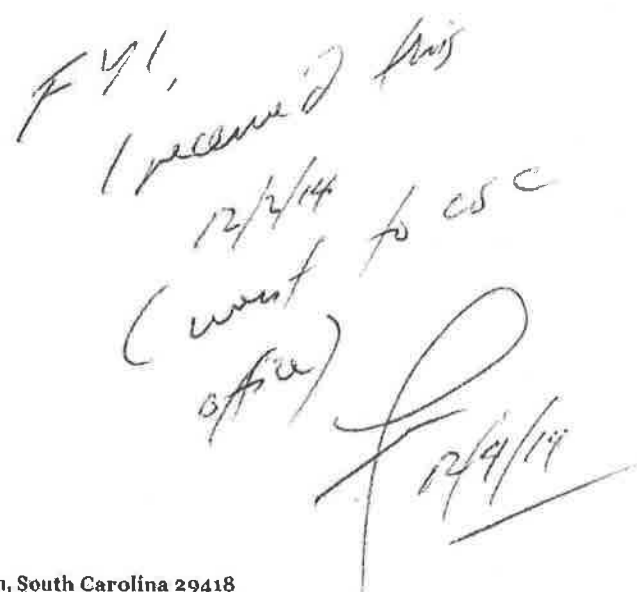 FYI,
I received this
12/2/14
(went to CSC
office)
12/9/14
, South Carolina 29418